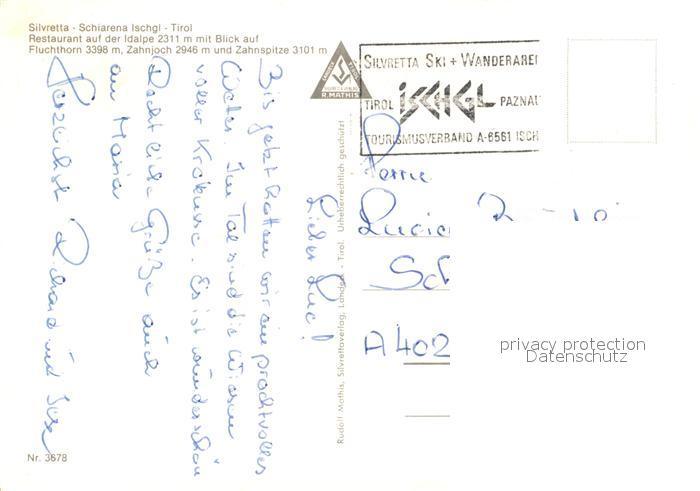 Silvretta - Schiarena Ischgl - Tirol
Restaurant auf der Idalpe 2311 m mit Blick auf
Fluchthorn 3398 m, Zahnjoch 2946 m und Zahnspitze 3101 m
R. MATHIS
SILVRETTA SKI + WANDERAREN
TIROL ISCHGL PAZNAU
TOURISMUSVERBAND A-6561 ISCH
Lieber Luc!
Bis jetzt hatten wir ein prachtvolles
Wetter. Im Tal sind die Wiesen
voller Krokusse. Es ist wunderschön
Recht liebe Grüße auch
an Maria
Herzlichst Richard und
Rudolf Mathis, Silvrettaverlag, Landeck - Tirol. Urheberrechtlich geschützt!
Herrn
Sch
A 402
privacy protection
Datenschutz
Nr. 3678